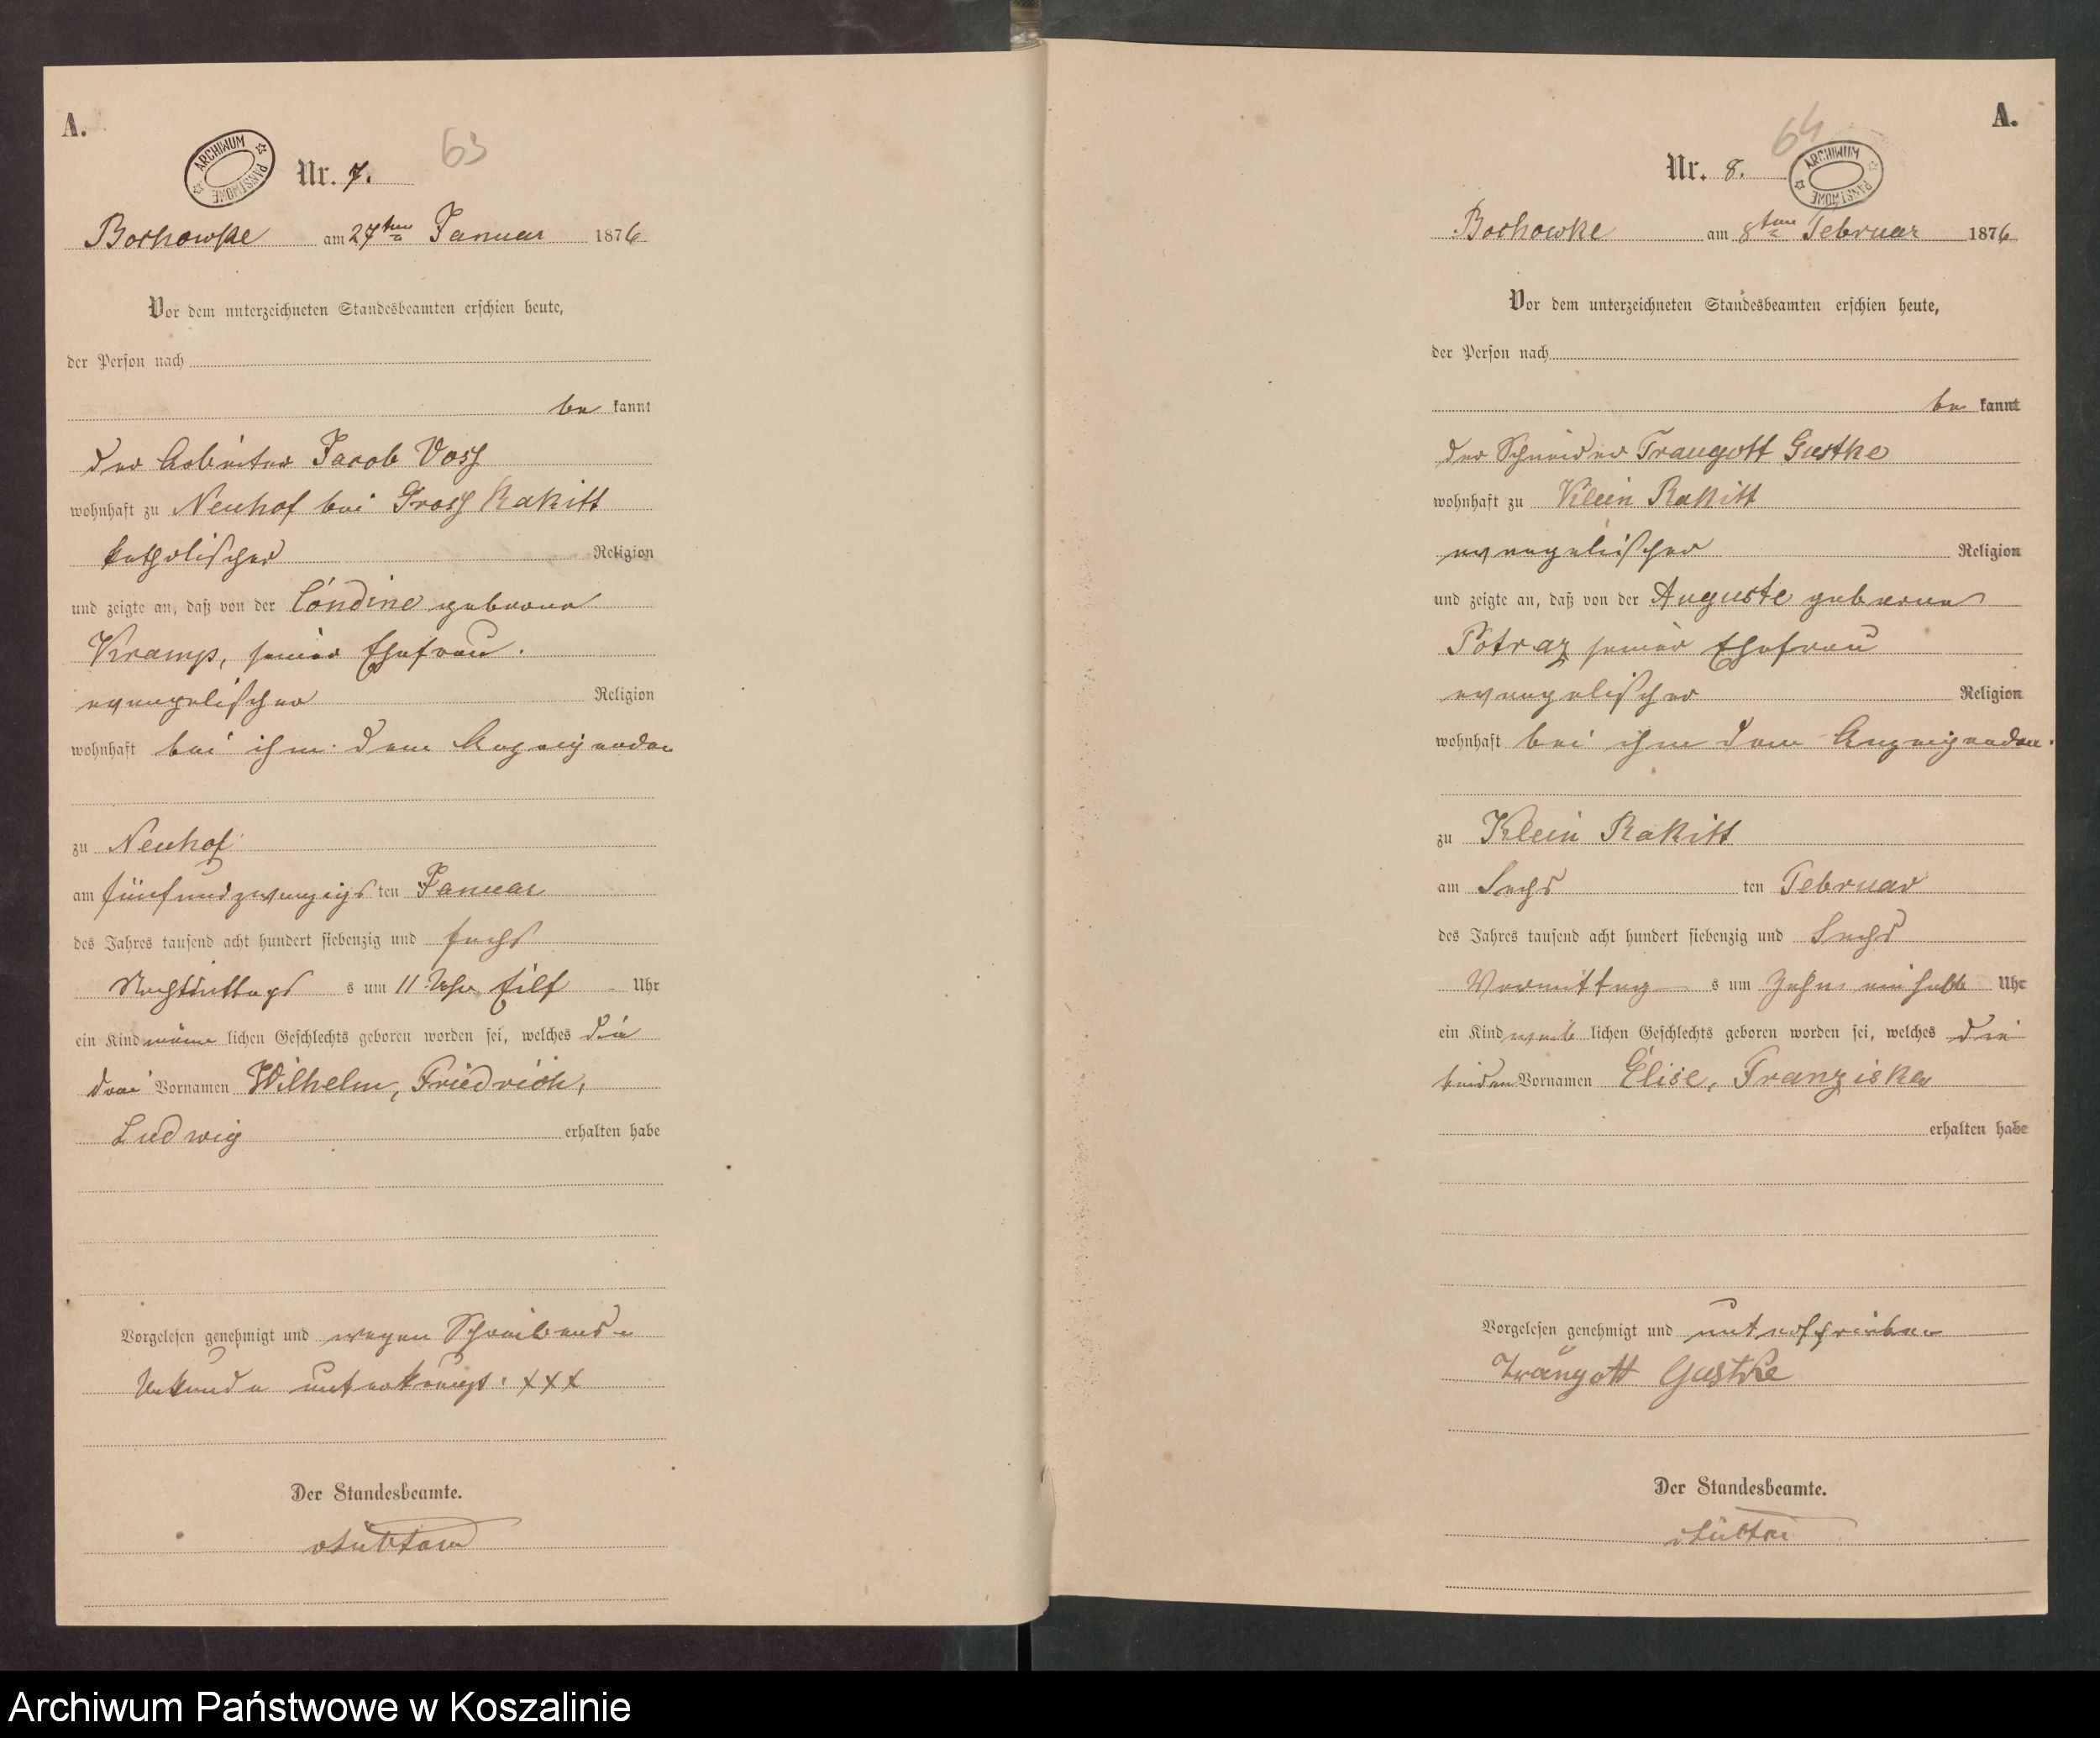 A.
ARCHIWUM PAŃSTWOWE
63
Nr. 7.
Bochowke am 27ten Januar 1876
Vor dem unterzeichneten Standesbeamten erschien heute,
der Person nach
be kannt
der Arbeiter Jacob Voss
wohnhaft zu Neuhof bei Gross Rakitt
katholischer Religion
und zeigte an, daß von der geborne
Kramp, seiner Ehefrau.
evangelischer Religion
wohnhaft bei ihm dem Anzeigenden
zu Neuhof
am fünfundzwanzigs ten Januar
des Jahres tausend acht hundert siebenzig und sechs
Nachmittags s um 11 Uhr Eilf Uhr
ein Kind männ lichen Geschlechts geboren worden sei, welches die
drei Vornamen Wilhelm, Friedrich,
Ludwig erhalten habe
Vorgelesen genehmigt und wegen Schreibens-
Unkunde unterkreuzt. XXX
Der Standesbeamte.
A.
64
ARCHIWUM PAŃSTWOWE
Nr. 8.
Bochowke am 8ten Februar 1876
Vor dem unterzeichneten Standesbeamten erschien heute,
der Person nach
be kannt
der Schneider Traugott Gustke
wohnhaft zu Klein Rakitt
evangelischer Religion
und zeigte an, daß von der Auguste geborne
Potraz seiner Ehefrau
evangelischer Religion
wohnhaft bei ihm dem Anzeigenden.
zu Klein Rakitt
am Sechs ten Februar
des Jahres tausend acht hundert siebenzig und Sechs
Vormittag s um Zehn ein halb Uhr
ein Kind weib lichen Geschlechts geboren worden sei, welches die
beiden Vornamen Elise, Franziska
erhalten habe
Vorgelesen genehmigt und unterschrieben
Traugott Gustke
Der Standesbeamte.
Archiwum Państwowe w Koszalinie